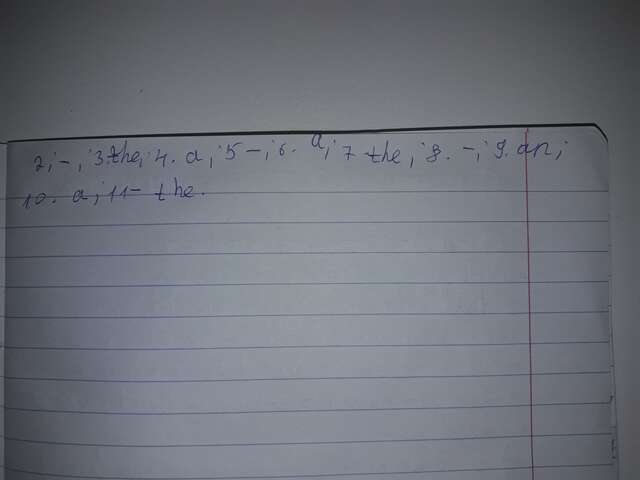 2; -, ; 3. the; 4. a; 5 -; 6. a; 7 the; 8. -; 9. an;
10. a; 11 - the.